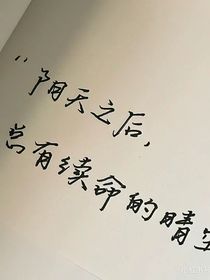 “阴天之后,
总有续命的晴空